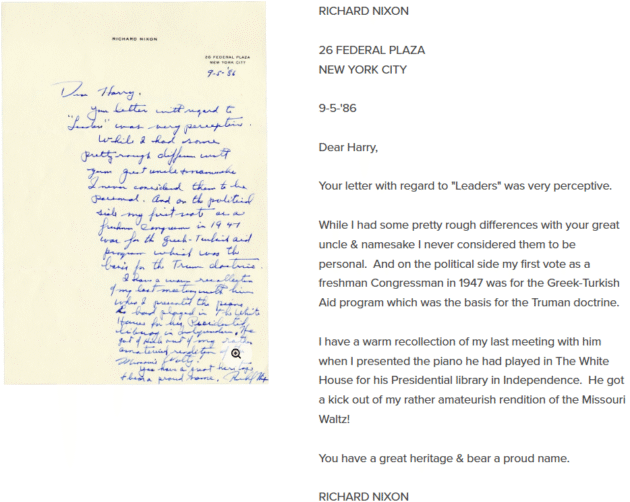 RICHARD NIXON
26 FEDERAL PLAZA
NEW YORK CITY
9-5-'86
Dear Harry,
Your letter with regard to
"Leaders" was very perceptive.
While I had some
pretty rough differences with
your great uncle & namesake
I never considered them to be
personal. And on the political
side my first vote as a
freshman Congressman in 1947
was for the Greek-Turkish aid
program which was the
basis for the Truman doctrine.
I have a warm recollection
of my last meeting with him
when I presented the piano
he had played in The White
House for his Presidential
library in Independence. He
got a kick out of my rather
amateurish rendition of
Missouri Waltz!
You have a great heritage
& bear a proud name. Richard Nixon
RICHARD NIXON
26 FEDERAL PLAZA
NEW YORK CITY
9-5-'86
Dear Harry,
Your letter with regard to "Leaders" was very perceptive.
While I had some pretty rough differences with your great
uncle & namesake I never considered them to be
personal. And on the political side my first vote as a
freshman Congressman in 1947 was for the Greek-Turkish
Aid program which was the basis for the Truman doctrine.
I have a warm recollection of my last meeting with him
when I presented the piano he had played in The White
House for his Presidential library in Independence. He got
a kick out of my rather amateurish rendition of the Missouri
Waltz!
You have a great heritage & bear a proud name.
RICHARD NIXON